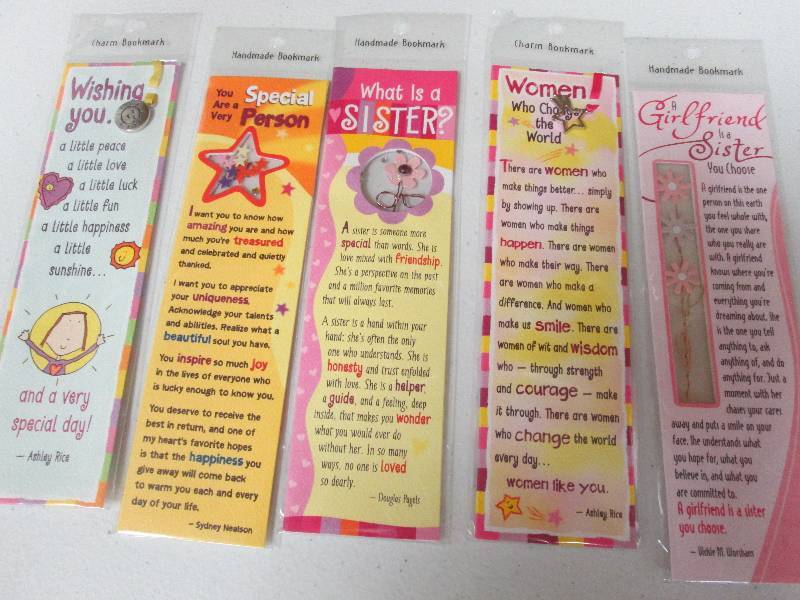 Charm Bookmark
Wishing
you.
a little peace
a little love
a little luck
a little fun
a little happiness
a little
sunshine...
and a very
special day!
— Ashley Rice
Handmade Bookmark
You Are a Very
Special
Person
I want you to know how
amazing you are and how
much you're treasured
and celebrated and quietly
thanked.
I want you to appreciate
your uniqueness.
Acknowledge your talents
and abilities. Realize what a
beautiful soul you have.
You inspire so much joy
in the lives of everyone who
is lucky enough to know you.
You deserve to receive the
best in return, and one of
my heart's favorite hopes
is that the happiness you
give away will come back
to warm you each and every
day of your life.
– Sydney Nealson
Handmade Bookmark
What Is a
SISTER?
A sister is someone more
special than words. She is
love mixed with friendship.
She's a perspective on the past
and a million favorite memories
that will always last.
A sister is a hand within your
hand; she's often the only
one who understands. She is
honesty and trust enfolded
with love. She is a helper,
a guide, and a feeling, deep
inside, that makes you wonder
what you would ever do
without her. In so many
ways, no one is loved
so dearly.
— Douglas Pagels
Charm Bookmark
Women
Who Change
the
World
There are women who
make things better... simply
by showing up. There are
women who make things
happen. There are women
who make their way. There
are women who make a
difference. And women who
make us smile. There are
women of wit and wisdom
who — through strength
and courage — make
it through. There are women
who change the world
every day...
women like you.
— Ashley Rice
Handmade Bookmark
A
Girlfriend
Is a
Sister
You Choose
A girlfriend is the one
person on this earth
you feel whole with,
the one you share
who you really are
with. A girlfriend
knows where you're
coming from and
everything you're
dreaming about. She
is the one you tell
anything to, ask
anything of, and do
anything for. Just a
moment with her
chases your cares
away and puts a smile on your
face. She understands what
you hope for, what you
believe in, and what you
are committed to.
A girlfriend is a sister
you choose.
— Vickie M. Worsham